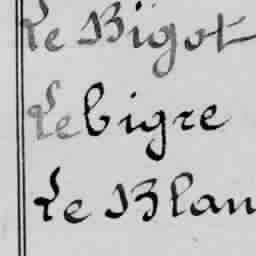 Le Bigot
Lebigre
Le Blan